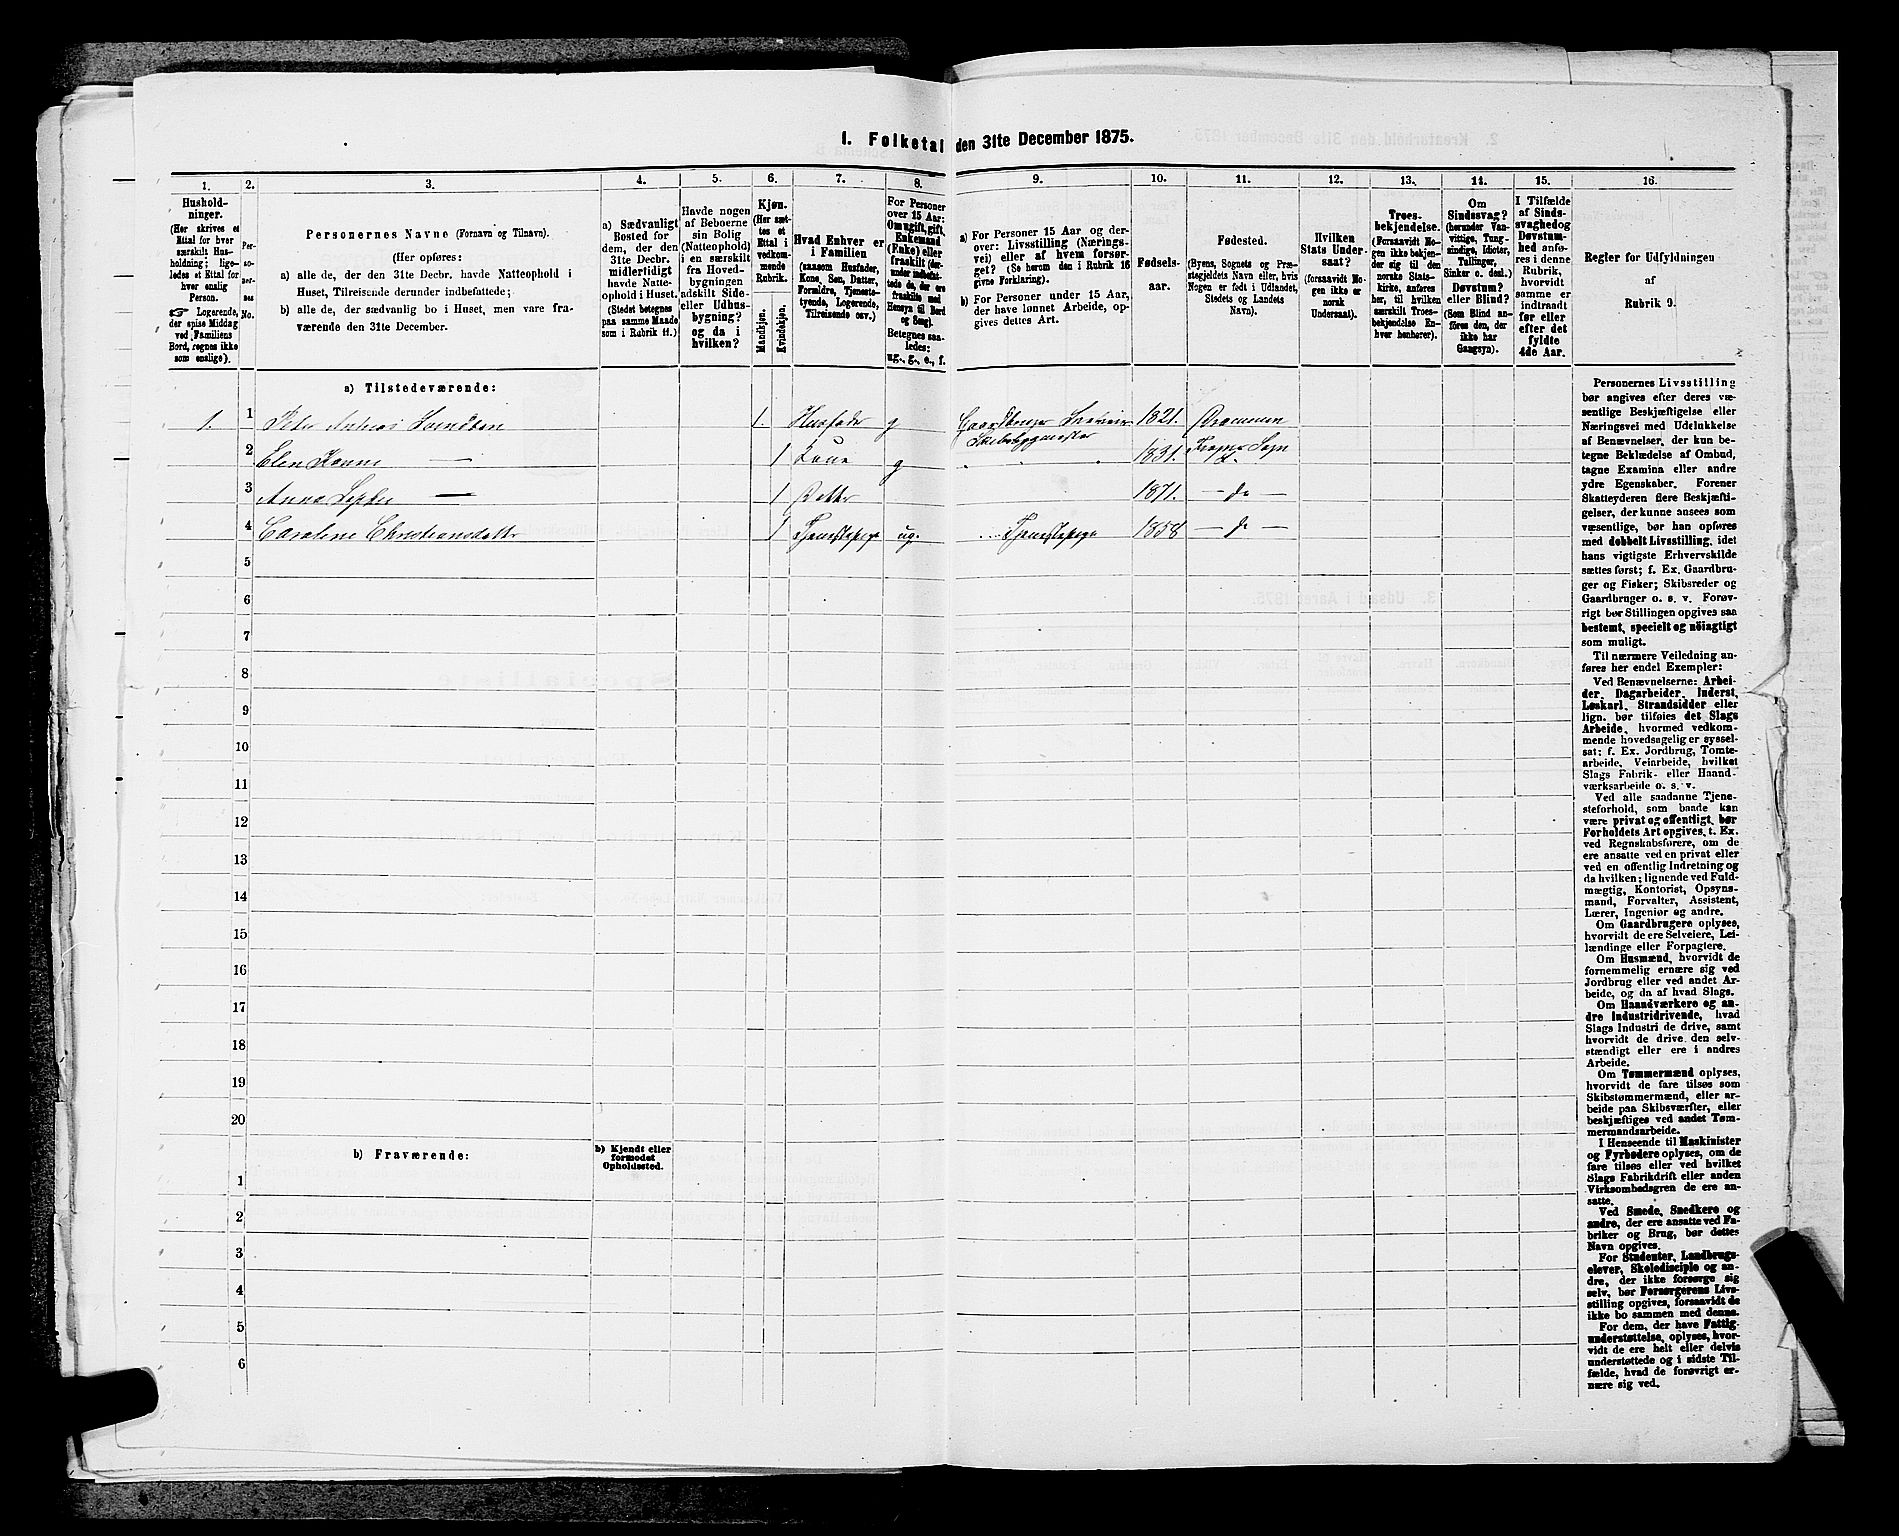 1. Folketal den 31te December 1875.
1.
2.
3.
4.
5.
6.
7.
8.
9.
10.
11.
12.
13.
14.
15.
16.
Hushold-
ninger.
(Her skrives et
Ettal for hver
særskilt Hus-
holdning; lige-
ledes et Ettal for
hver enslig
Person.
☞ Logerende,
der spise Middag
ved Familiens
Bord, regnes ikke
som enslige).
Per-
so-
ner-
nes
No.
Personernes Navne (Fornavn og Tilnavn).
(Her opføres:
a) alle de, der den 31te Decbr. havde Natteophold i
Huset, Tilreisende derunder indbefattede;
b) alle de, der sædvanlig bo i Huset, men vare fra-
værende den 31te December.
a) Sædvanligt
Bosted for
dem, der den
31te Decbr.
midlertidigt
havde Natte-
ophold i Huset.
(Stedet betegnes
paa samme Maade
som i Rubrik 11.)
Havde nogen
af Beboerne
sin Bolig
(Natteophold)
i en særskilt
fra Hoved-
bygningen
adskilt Side-
eller Udhus-
bygning?
og da i
hvilken?
Kjøn.
(Her sæt-
tes et
Ettal i
vedkom-
mende
Rubrik.
Mandkjøn.
Kvindekjøn.
Hvad Enhver er
i Familien
(saasom Husfader,
Kone, Søn, Datter,
Forældre, Tjeneste-
tyende, Logerende,
Tilreisende osv.)
For Personer
over 15 Aar:
Om ugift, gift,
Enkemand
(Enke) eller
fraskilt (der-
under indbefat-
tede de, der ere
fraskilte med
Hensyn til Bord
og Seng).
Betegnes saa-
ledes:
ug., g., e., f.
a) For Personer 15 Aar og der-
over: Livsstilling (Nærings-
vei) eller af hvem forsør-
get? (Se herom den i Rubrik 16
givne Forklaring).
b) For Personer under 15 Aar,
der have lønnet Arbeide, op-
gives dettes Art.
Fødsels-
aar.
Fødested.
(Byens, Sognets og Præ-
stegjeldets Navn eller, hvis
Nogen er født i Udlandet,
Stedets og Landets
Navn).
Hvilken
Stats Under-
saat?
(forsaavidt No-
gen ikke er
norsk
Undersaat).
Troes-
bekjendelse.
(Forsaavidt No-
gen ikke bekjen-
der sig til den
norske Stats-
kirke, anføres
her, til hvilken
særskilt Troes-
bekjendelse En-
hver henhører).
Om
Sindssvag?
(herunder Van-
vittige, Tung-
sindige, Idioter,
Tullinger,
Sinker o. desl.)
Døvstum?
eller Blind?
(Som Blind an-
føres den, der
ikke har
Gangsyn).
I Tilfælde
af Sinds-
svaghed og
Døvstum-
hed anfø-
res i denne
Rubrik,
hvorvidt
samme er
indtraadt
før eller
efter det
fyldte
4de Aar.
Regler for Udfyldningen
af
Rubrik 9.
a) Tilstedeværende:
1. 1 Peter Andreas 1. Husfader g Gaardbruger 1821. Drammen
Skibsbygmester
2 Elen Hanne — 1 Kone g 1831. Sogn
3 Anna — 1 Datter 1871. — do —
4 Caroline Christiansdatter 1 Tjenestepige ug. Tjenestepige 1858 — do —
5
6
7
8
9
10
11
12
13
14
15
16
17
18
19
20
b) Fraværende:
b) Kjendt eller
formodet
Opholdssted.
1
2
3
4
5
6
Personernes Livsstilling
bør angives efter deres væ-
sentlige Beskjæftigelse eller
Næringsvei med Udelukkelse
af Benævnelser, der kun be-
tegne Beklædelse af Ombud,
tagne Examina eller andre
ydre Egenskaber. Forener
Skatteyderen flere Beskjæfti-
gelser, der kunne ansees som
væsentlige, bør han opføres
med dobbelt Livsstilling, idet
hans vigtigste Erhvervskilde
sættes først; f. Ex. Gaardbru-
ger og Fisker; Skibsreder og
Gaardbruger o. s. v. Forøv-
rigt bør Stillingen opgives saa
bestemt, specielt og nöiagtigt
som muligt.
Til nærmere Veiledning an-
føres her endel Exempler:
Ved Benævnelserne: Arbei-
der, Dagarbeider, Inderst,
Løskarl, Strandsidder eller
lign. bør tilføies det Slags
Arbeide, hvormed vedkom-
mende hovedsagelig er syssel-
sat; f. Ex. Jordbrug, Tomte-
arbeide, Veiarbeide, hvilket
Slags Fabrik- eller Haand-
værksarbeide o. s. v.
Ved alle saadanne Tjene-
steforhold, som baade kan
være privat og offentligt, bør
Forholdets Art opgives, t. Ex.
ved Regnskabsførere, om de
ere ansatte ved en privat eller
ved en offentlig Indretning og
da hvilken; lignende ved Fuld-
mægtig, Kontorist, Opsyns-
mand, Forvalter, Assistent,
Lærer, Ingeniør og andre.
Om Gaardbrugere oplyses,
hvorvidt de ere Selveiere, Lei-
lændinge eller Forpagtere.
Om Husmænd, hvorvidt de
fornemmelig ernære sig ved
Jordbrug eller ved andet Ar-
beide, og da af hvad Slags.
Om Haandværkere og an-
dre Industridrivende, hvad
Slags Industri de drive, samt
hvorvidt de drive den selv-
stændigt eller ere i andres
Arbeide.
Om Tømmermænd oplyses,
hvorvidt de fare tilsøs som
Skibstømmermænd, eller ar-
beide paa Skibsværfter, eller
beskjæftiges ved andet Tøm-
mermandsarbeide.
I Henseende til Maskinister
og Fyrbødere oplyses, om de
fare tilsøs eller ved hvilket
Slags Fabrikdrift eller anden
Virksomhedsgren de ere an-
satte.
Ved Smede, Snedkere og
andre, der ere ansatte ved Fa-
briker og Brug, bør dettes
Navn opgives.
For Studenter, Landbrugs-
elever, Skoledisciple og an-
dre, der ikke forsørge sig
selv, bør Forsørgerens Livs-
stilling opgives, forsaavidt de
ikke bo sammen med denne.
For dem, der have Fattig-
understøttelse, oplyses, hvor-
vidt de ere helt eller delvis
understøttede og i sidste Til-
fælde, hvad de forøvrigt er-
nære sig ved.